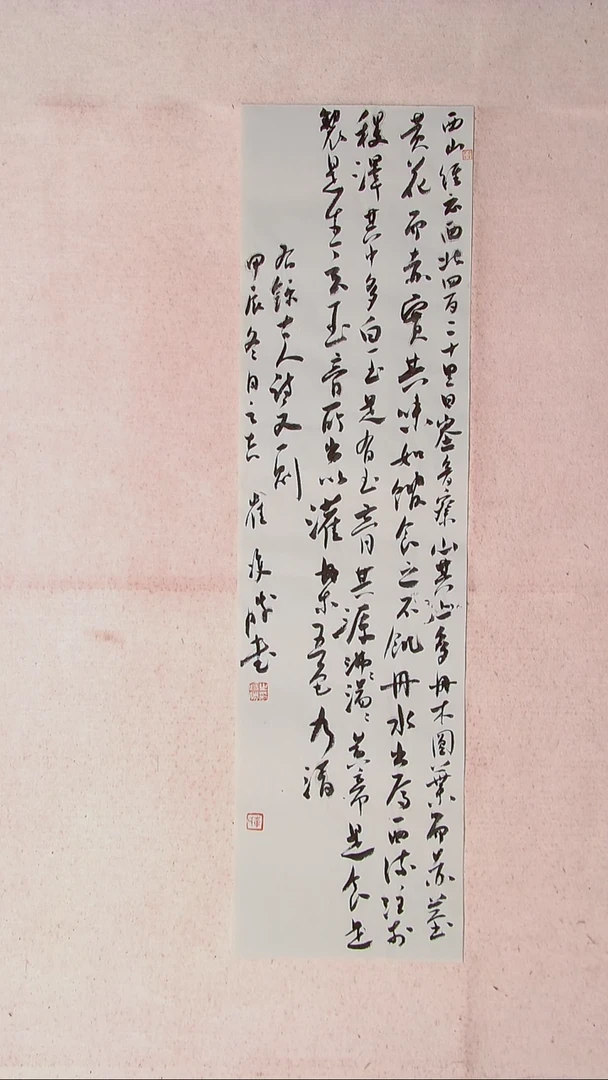 西山經云西北四百二十里曰峚音密山其上多丹木圓葉而赤莖
黃花而赤實其味如飴食之不飢丹水出焉西流注于
稷澤其中多白玉是有玉膏其源沸沸湯湯黃帝是食是
饗是生玄玉膏所出以灌丹木五色乃清
右錄古人詩文一則
甲辰冬日之吉 崔 書